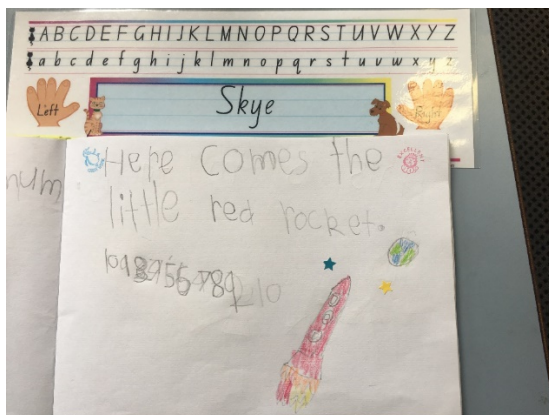 ABCDEFGHIJKLMNOPQRSTUVWXYZ
abcdefghijklmnopqrstuvwxyz
Left
Skye
Right
num
Here comes the
little red rocket.